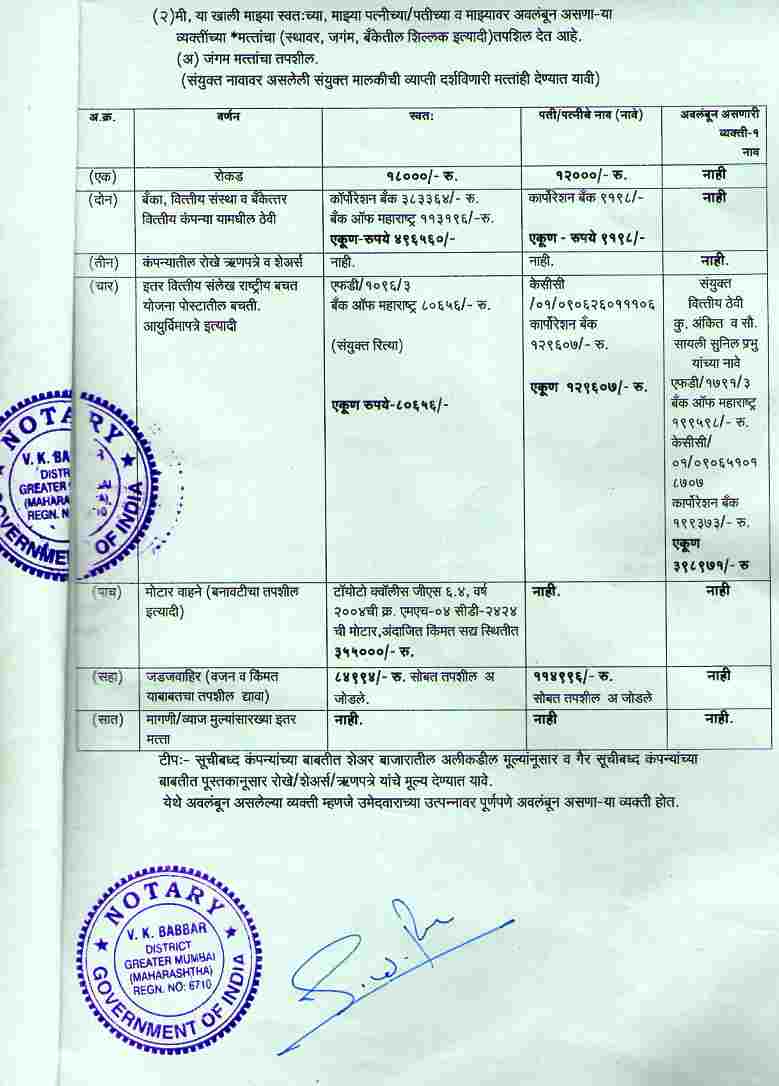 (२)मी, या खाली माझ्या स्वतःच्या, माझ्या पत्नीच्या/पतीच्या व माझ्यावर अवलंबून असणा-या
व्यक्तींच्या *मत्तांचा (स्थावर, जगंम, बँकेतील शिल्लक इत्यादी)तपशिल देत आहे.
(अ) जंगम मत्तांचा तपशील.
(संयुक्त नावावर असलेली संयुक्त मालकीची व्याप्ती दर्शविणारी मत्तांही देण्यात यावी)
अ.क्र. वर्णन स्वतः पती/पत्नीचे नाव (नावे) अवलंबून असणारी
व्यक्ती-१
नाव
(एक) रोकड १८०००/- रु. १२०००/- रु. नाही
(दोन) बँका, वित्तीय संस्था व बँकेत्तर कॉर्पोरेशन बँक ३८३३६४/- रु. कार्पोरेशन बँक ९१९८/- नाही
वित्तीय कंपन्या यामधील ठेवी बँक ऑफ महाराष्ट्र ११३१९६/-रु.
एकूण-रुपये ४९६५६०/- एकूण - रुपये ९१९८/-
(तीन) कंपन्यातील रोखे ऋणपत्रे व शेअर्स नाही. नाही. नाही.
(चार) इतर वित्तीय संलेख राष्ट्रीय बचत एफडी/१०९६/३ केसीसी संयुक्त
योजना पोस्टातील बचती. बँक ऑफ महाराष्ट्र ८०६५६/- रु. /०१/०९०६२६०१११०६ वित्तीय ठेवी
आयुर्विमापत्रे इत्यादी कार्पोरेशन बँक कु. अंकित व सौ.
(संयुक्त रित्या) १२९६०७/- रु. सायली सुनिल प्रभु
यांच्या नावे
एकूण रुपये-८०६५६/- एकूण १२९६०७/- रु. एफडी/१७९१/३
बँक ऑफ महाराष्ट्र
१९९५९८/- रु.
केसीसी/
०१/०९०६५१०१
८७०७
कार्पोरेशन बँक
१९९३७३/- रु.
एकूण
३९८९७१/- रु
(पाच) मोटार वाहने (बनावटीचा तपशील टॉयोटो क्वॉलीस जीएस ६.४, वर्ष नाही. नाही
इत्यादी) २००४ची क्र. एमएच-०४ सीडी-२४२४
ची मोटार,अंदाजित किंमत सद्य स्थितीत
३५५०००/- रु.
(सहा) जडजवाहिर (वजन व किंमत ८४९९४/- रु. सोबत तपशील अ ११४९९६/- रु. नाही
याबाबतचा तपशील द्यावा) जोडले. सोबत तपशील अ जोडले
(सात) मागणी/व्याज मुल्यांसारख्या इतर नाही. नाही नाही.
मत्ता
टीपः- सूचीबध्द कंपन्यांच्या बाबतीत शेअर बाजारातील अलीकडील मूल्यांनुसार व गैर सूचीबध्द कंपन्यांच्या
बाबतीत पूस्तकानूसार रोखे/शेअर्स/ऋणपत्रे यांचे मूल्य देण्यात यावे.
येथे अवलंबून असलेल्या व्यक्ती म्हणजे उमेदवाराच्या उत्पन्नावर पूर्णपणे अवलंबून असणा-या व्यक्ती होत.
NOTARY
V. K. BA
DISTR
GREATER
(MAHARA
REGN. N
GOVERNMENT OF INDIA
NOTARY
V. K. BABBAR
DISTRICT
GREATER MUMBAI
(MAHARASHTHA)
REGN. NO: 6710
GOVERNMENT OF INDIA